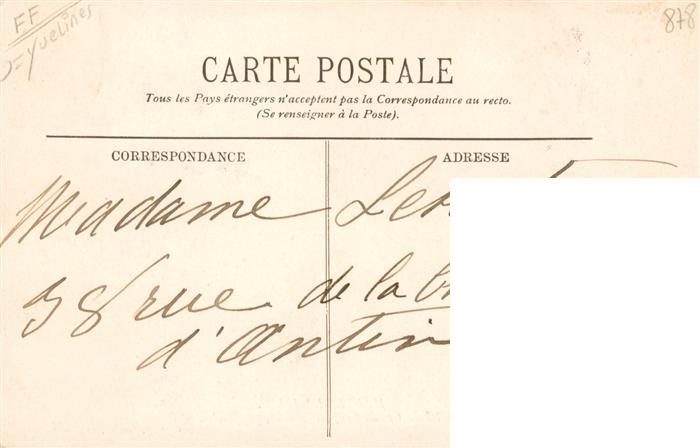 FF
Yvelines
878
CARTE POSTALE
Tous les Pays étrangers n'acceptent pas la Correspondance au recto.
(Se renseigner à la Poste).
CORRESPONDANCE
ADRESSE
Madame
58 rue de la
d'Antin